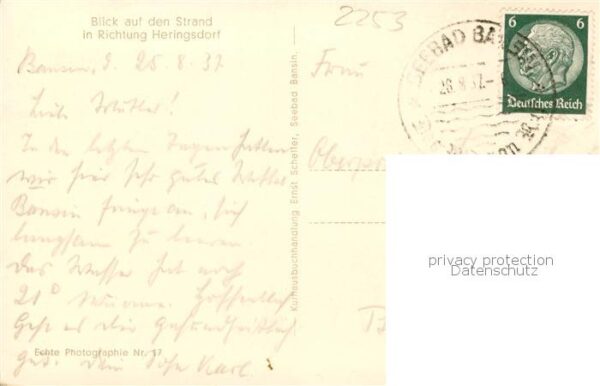 Blick auf den Strand
in Richtung Heringsdorf
2253
Bansin, d. 25.8.37
Liebe Mutter!
In den letzten Tagen hatten
wir hier sehr gutes Wetter.
Bansin fängt an, sich
langsam zu leeren.
Das Wasser hat noch
21° Wärme. Hoffentlich
geht es dir gesundheitlich
gut. Dein Sohn Karl.
Echte Photographie Nr. 17
Kurhausbuchhandlung Ernst Scheffer, Seebad Bansin,
Frau
SEEBAD
6 6
Deutsches Reich
privacy protection
Datenschutz